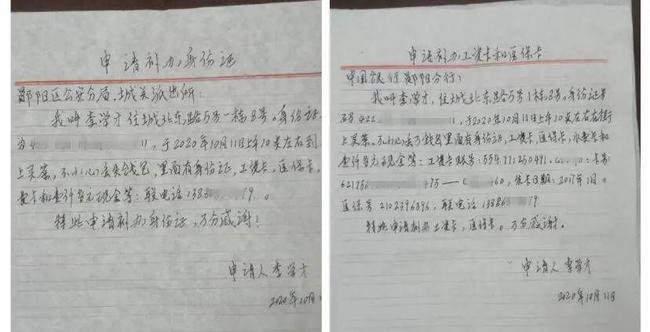 申请补办身份证
郧阳区公安分局,土城关派出所:
我叫李学才 住城北东路5号一栋8号。身份证
为4 11,于2020年10月11日上午10点左右到
上买菜,不小心丢失钱包,里面有身份证,工资卡,医保卡,
和 现金等:联电话138 79。
特此申请补办身份证,万分感谢!
申请人 李学才
2020年10月11
申请补办工资卡和医保卡
中国银行郧阳分行:
我叫李学才,住城北东路5号1栋8号。身份证
号422 11,于2020年10月11日上午10点左右在街
上买菜。不小心丢了钱包里面有身份证,工资卡,医保卡,
现金等:工资卡账号:554771250491 卡号
621756 475 60,
医保号2102396896,联电话13886 79
特此申请补办工资卡,医保卡。万分感谢。
申请人 李学才
2020年10月11日